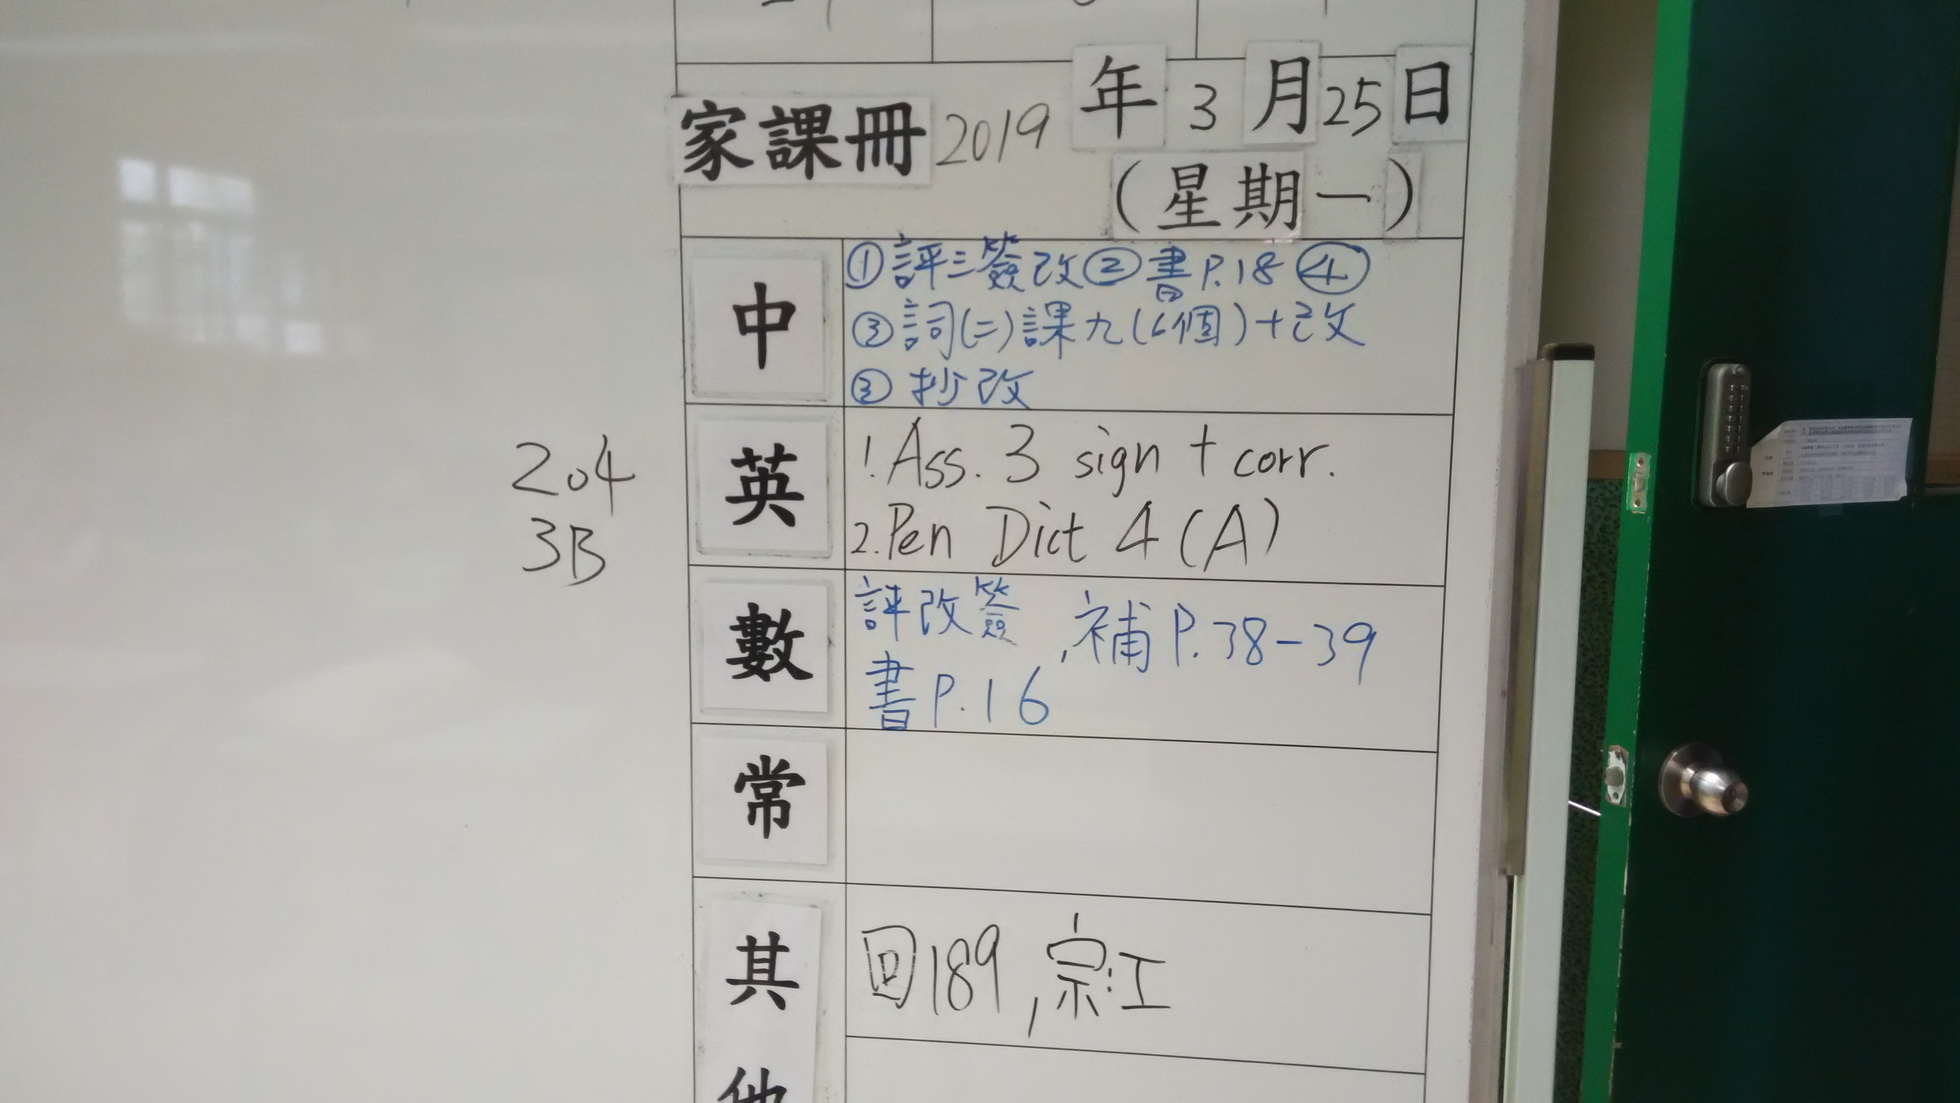 家課冊 2019 年 3 月 25 日
(星期一)
中
①評三簽改②書P.18 ④
③詞(二)課九(6個)+改
③抄改
英
1. Ass. 3 sign + corr.
2. Pen Dict 4 (A)
204
3B
數
評改簽, 補P.38-39
書P.16
常
其他
回189, 宗:工